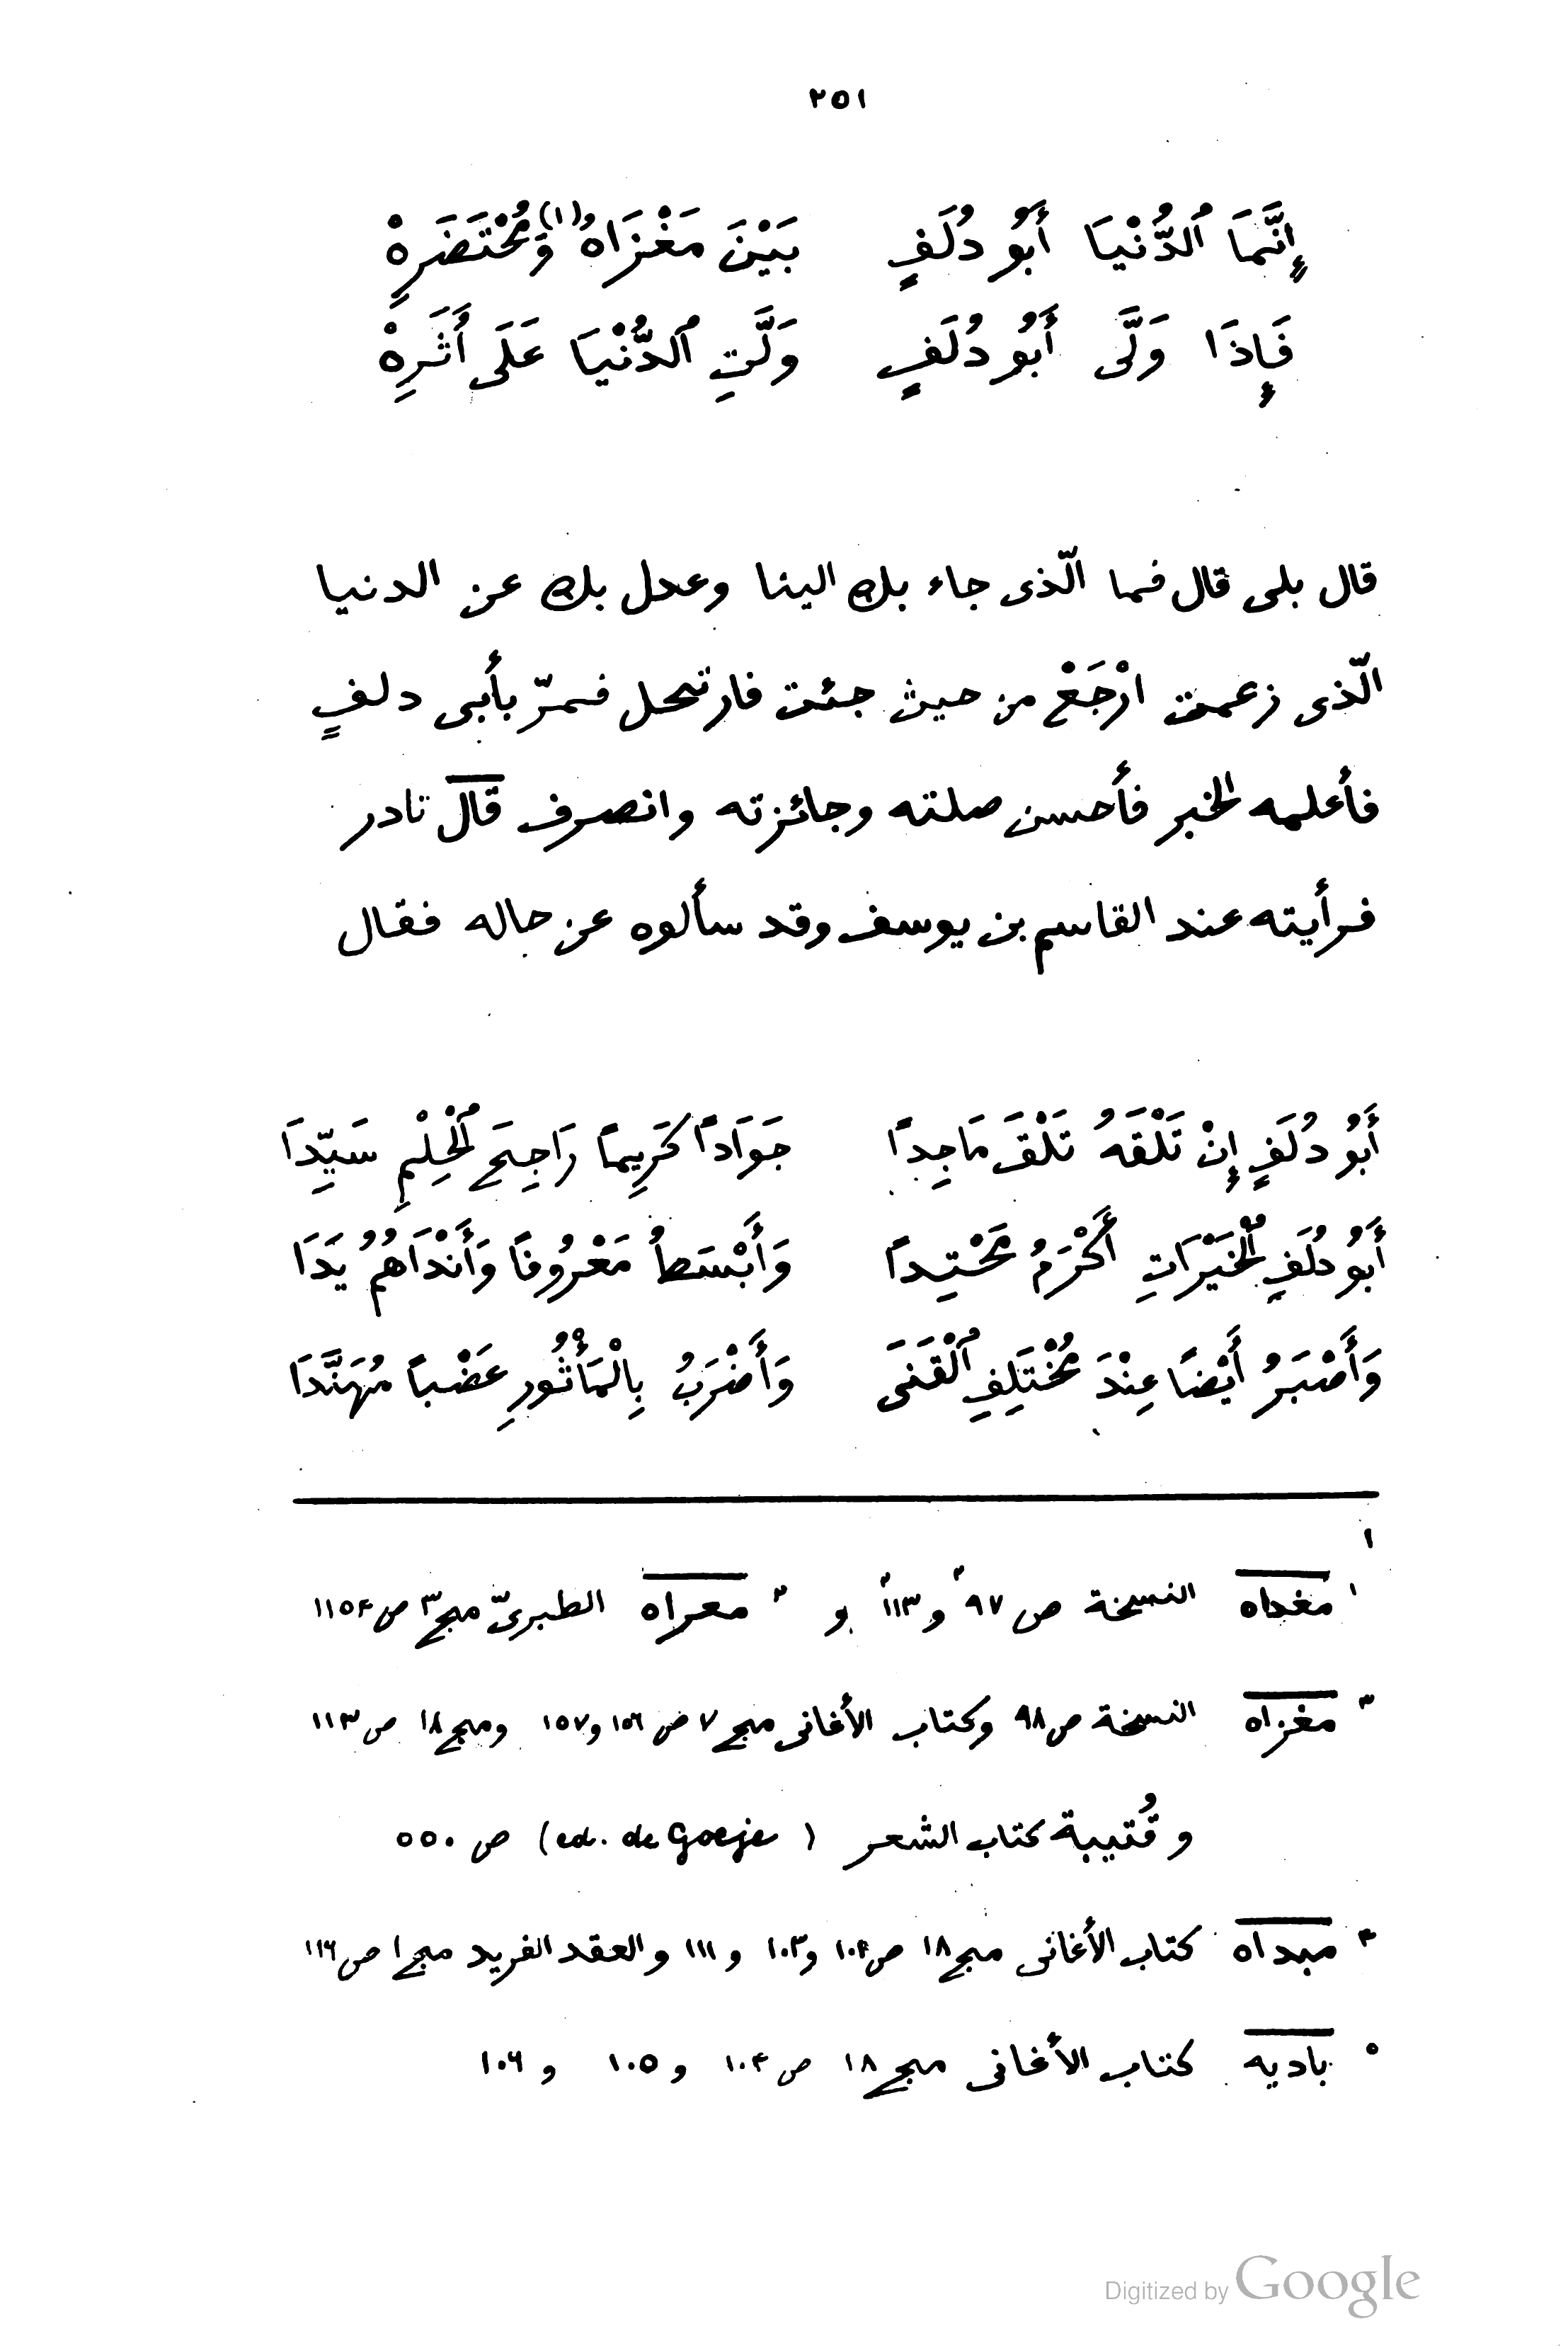 ٢٥١
إِنَّمَا ٱلدُّنْيَا أَبُو دُلَفٍ بَيْنَ مَغْزَاهُ (١) وَمُحْتَضَرِهْ
فَإِذَا وَلَّى أَبُو دُلَفٍ وَلَّتِ ٱلدُّنْيَا عَلَى أَثَرِهْ
قال بلى قال فما الّذى جاء بك الينا وعدل بك عن الدنيا
الّذى زعمت ارْجَعْ من حيث جئت فارتحل فمرّ بأبى دلفٍ
فأعلمه الخبر فأحسن صلته وجائزته وانصرف قال نادر
فرأيته عند القاسم بن يوسف وقد سألوه عن حاله فقال
أَبُو دُلَفٍ إِنْ تَلْقَهُ تَلْقَ مَاجِدًا جَوَادًا كَرِيمًا رَاجِحَ ٱلْحِلْمِ سَيِّدَا
أَبُو دُلَفِ ٱلْخَيْرَاتِ أَكْرَمُ مَحْتِدًا وَأَبْسَطُ مَعْرُوفًا وَأَنْدَاهُمُ يَدَا
وَأَصْبَرُ أَيْضًا عِنْدَ مُخْتَلِفِ ٱلْقَنَى وَأَضْرَبُ بِالْمَأْثُورِ عَضْبًا مُهَنَّدَا
١
١ مغداه النسخة ص ٩٧ و١١٣ و ٢ معراه الطبرىّ مج ٣ ص ١١٥٤
٣ مغزاه النسخة ص ٩٨ وكتاب الأغانى مج ٧ ص ١٥٦ و١٥٧ ومج ١٨ ص ١١٣
وقُتيبة كتاب الشعر (ed. de Goeje) ص ٥٥٠
٤ مبداه كتاب الأغانى مج ١٨ ص ١٠٤ و١٠٣ و ١١١ والعقد الفريد مج ١ ص ١١٦
٥ باديه كتاب الأغانى مج ١٨ ص ١٠٤ و ١٠٥ و ١٠٦
Digitized by Google